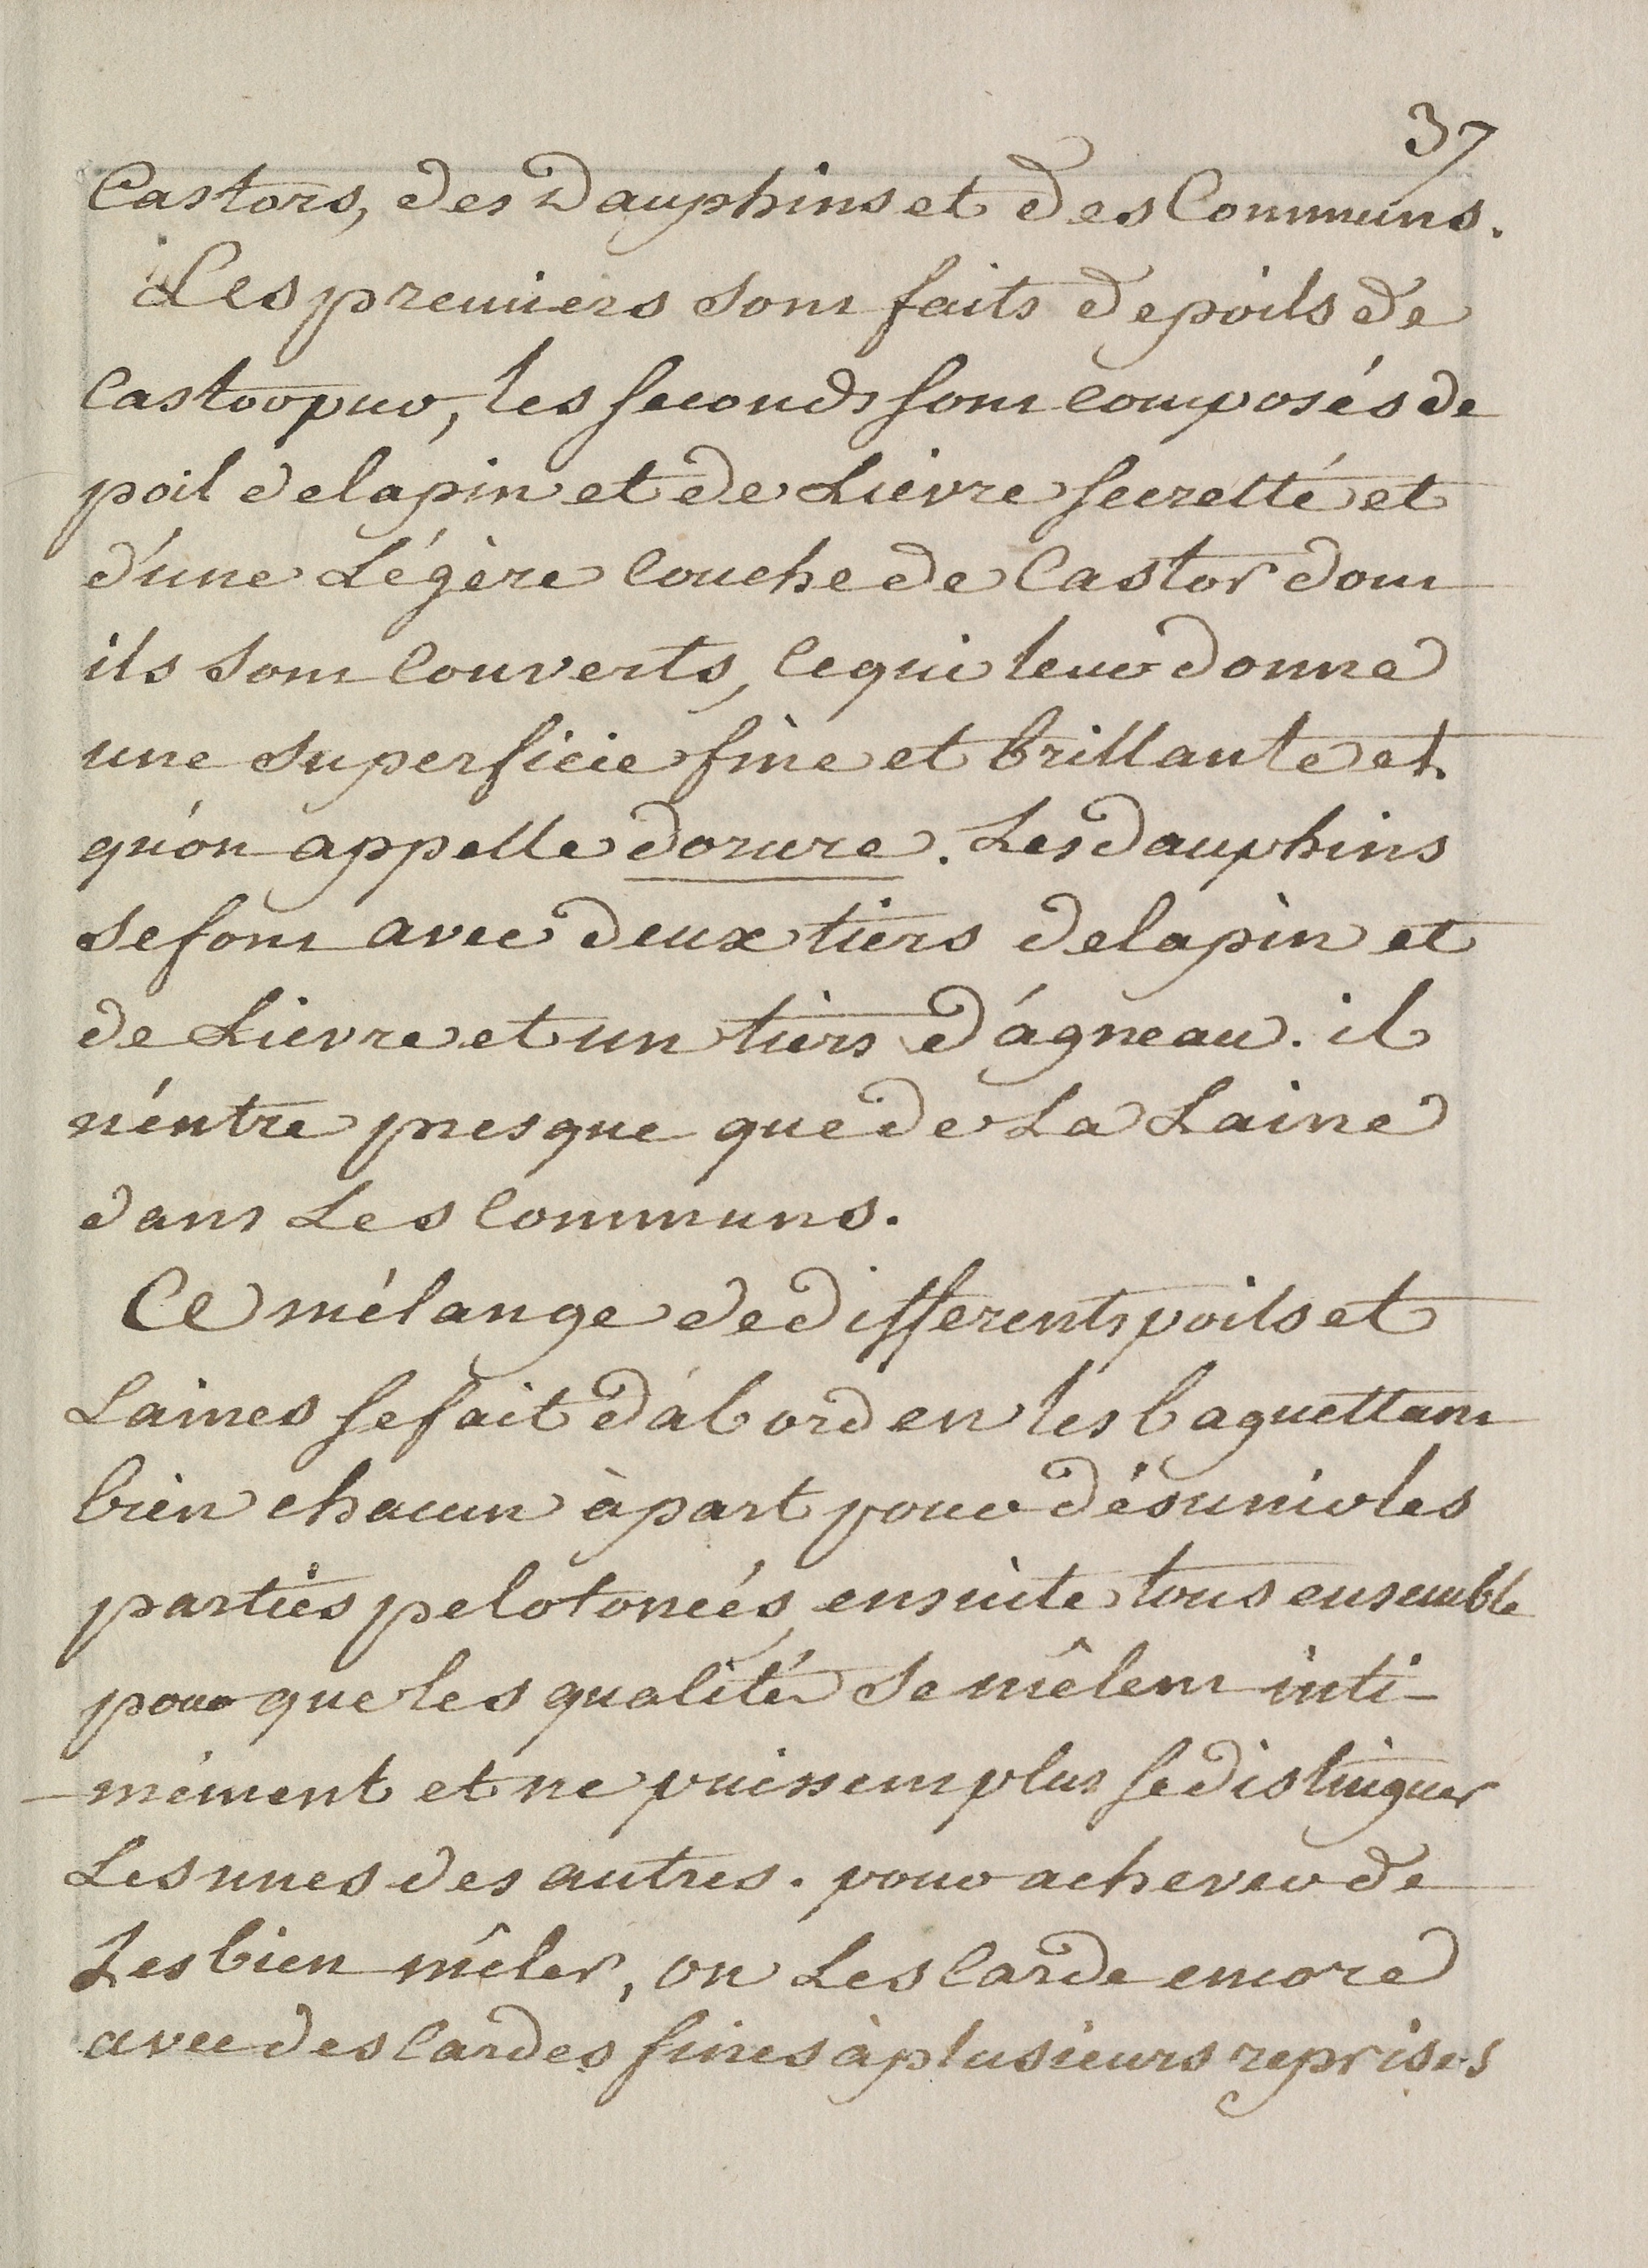 37
Castors, des Dauphins et des Communs.
Les premiers sont faits de poils de
Castor pur, les seconds sont composés de
poil de lapin et de Lievre secretté et
d'une Légère Couche de Castor dont
ils sont Couverts, Ce qui leur donne
une superficie fine et brillante et
qu'on appelle dorure. Les dauphins
se font avec deux tiers de lapin et
de Lievre et un tiers d'agneau. il
n'entre presque que de La Laine
dans Les Communs.
Ce mélange de differents poils et
Laines se fait d'abord en les baguettant
bien chacun à part pour désunir les
parties pelotonées, ensuite tous ensemble
pour que les qualités se mêlent inti-
-mément et ne puissent plus se distinguer
Les unes des autres. pour achever de
Les bien mêler, on Les Carde encore
avec des Cardes fines à plusieurs reprises